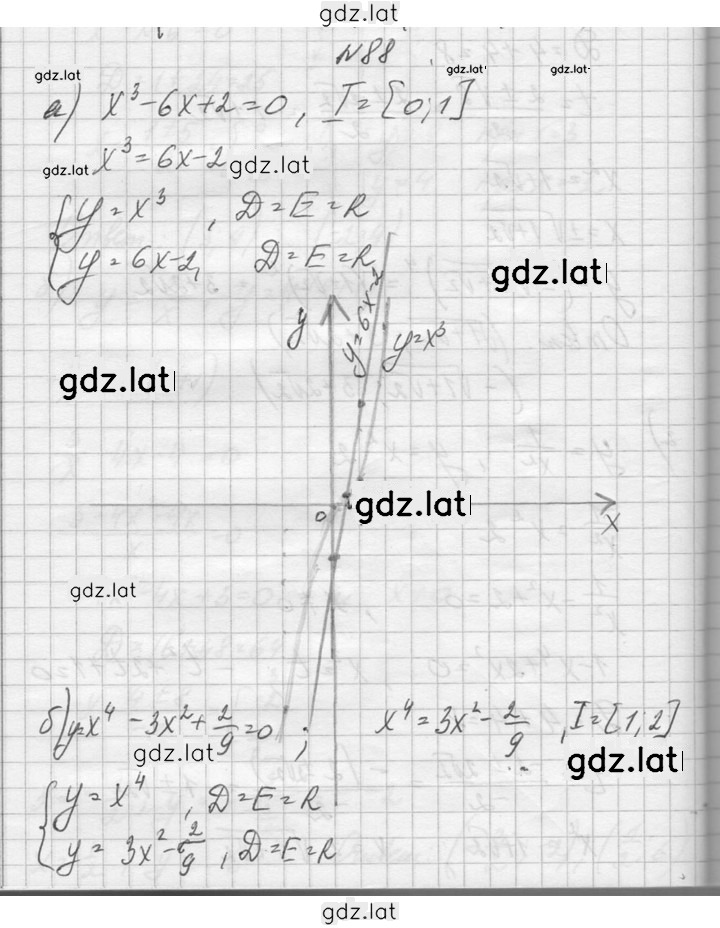 gdz.lat
N88
gdz.lat gdz.lat gdz.lat
а) x³-6x+2=0, I=[0;1]
gdz.lat x³=6x-2 gdz.lat
{ y=x³, D=E=R
{ y=6x-2, D=E=R
gdz.lat
y y=6x-2 y=x³
gdz.lat
0 1 gdz.lat
x
gdz.lat
б) y=x⁴ -3x²+2/9=0; x⁴=3x²-2/9, I=[1;2]
gdz.lat gdz.lat
{ y=x⁴, D=E=R
{ y=3x²-2/9, D=E=R
gdz.lat